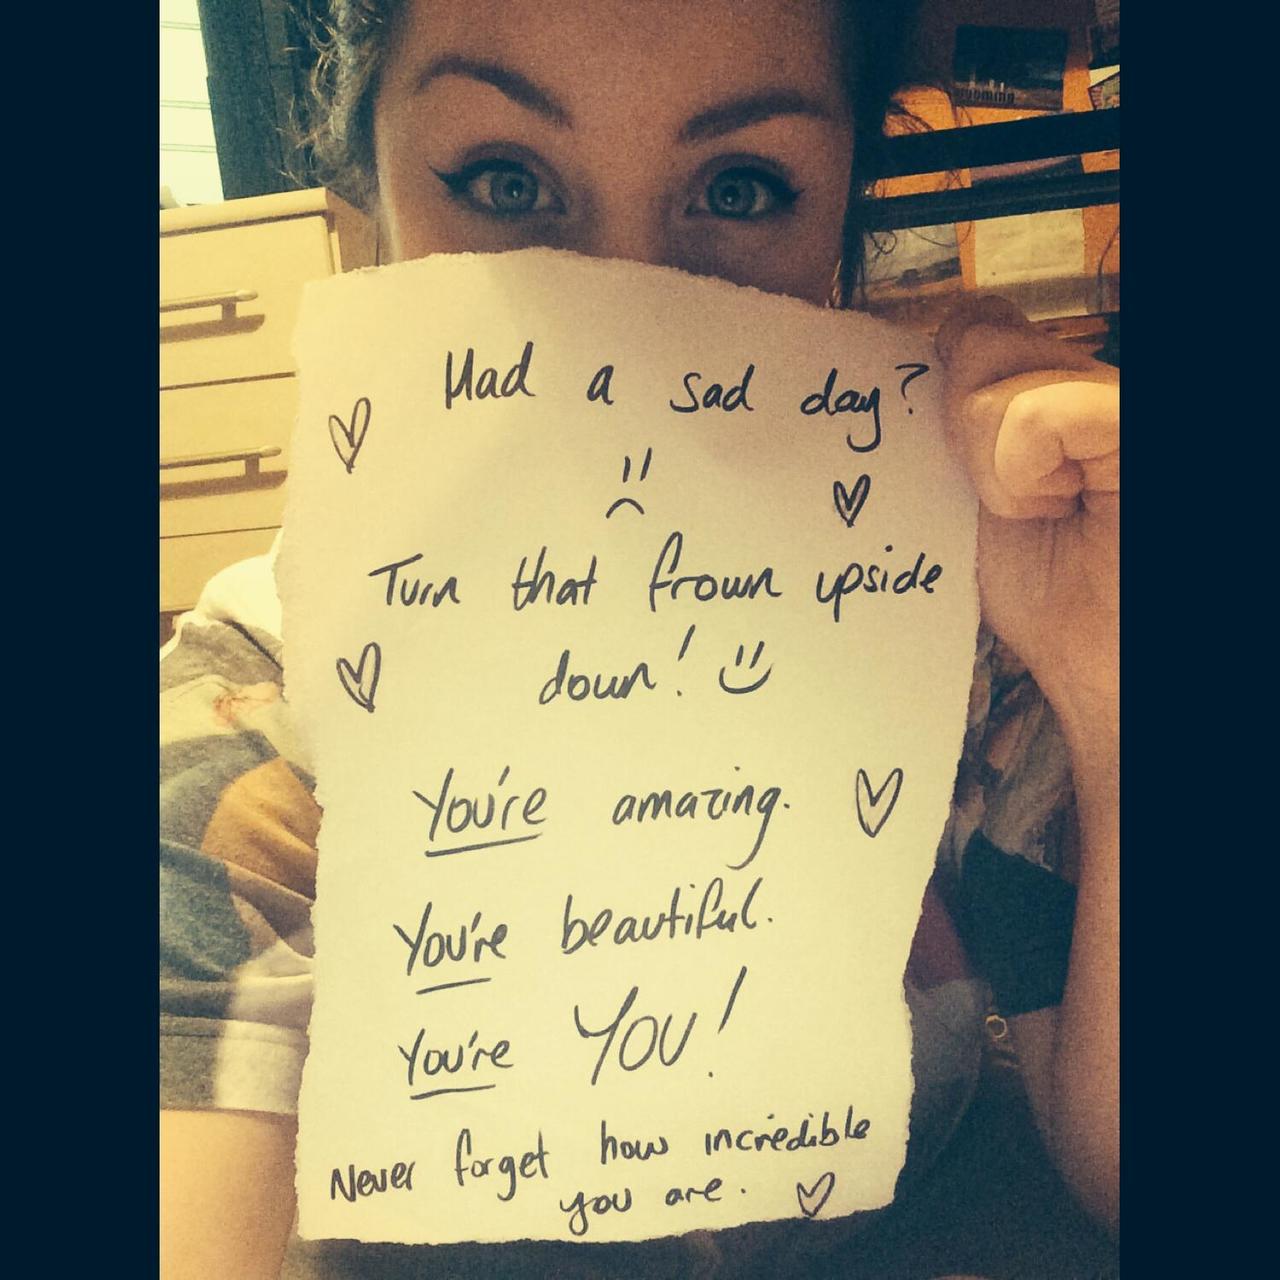 Had a sad day?
Turn that frown upside
down!
You're amazing.
You're beautiful.
You're YOU!
Never forget how incredible
you are.